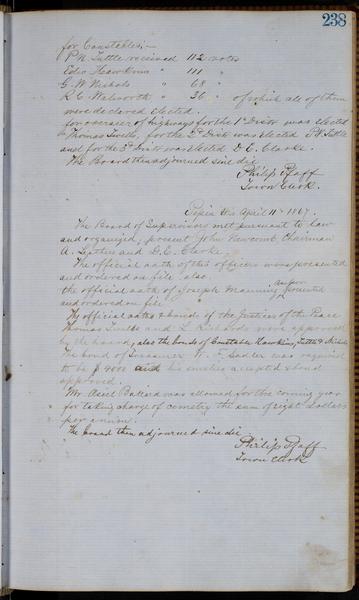 238
for Constables;—
P. N. Tuttle received 112 votes
Edw Hawkins " 111 "
G. W. Nichols " 68 "
R. C. Walworth " 36 " of which all of them
were declared elected.
for overseer of highways for the 1st Distr was elected
Thomas Tuells, for the 2d Distr was elected P. N. Tuttle
and for the 3d Distr was elected D. C. Clarke.
The Board then adjourned sine die
Philip Pfaff
Town Clerk.
Pepin Wis April 11th 1867.
The Board of Supervisors met pursuant to law
and organized, present John Newcomb Chairman
A. and D. C. Clarke.
The official oaths of the officers were presented
and ordered on file also
the official oath of Joseph Manning was presented
and ordered on file
The official oaths & bonds of the Justices of the Peace
Thomas Tuells and L. Richards were approved
by the board, also the bonds of Constable Hawkins, Tuttle & Nichols
The bond of Treasurer W. F. Sadler was required
to be $ 4000 and his sureties accepted & bond
approved.
Mr. Asiel Ballard was allowed for the coming year
for taking charge of cemetry the sum of eight Dollars
per annum.
The board then adjourned sine die
Philip Pfaff
Town Clerk